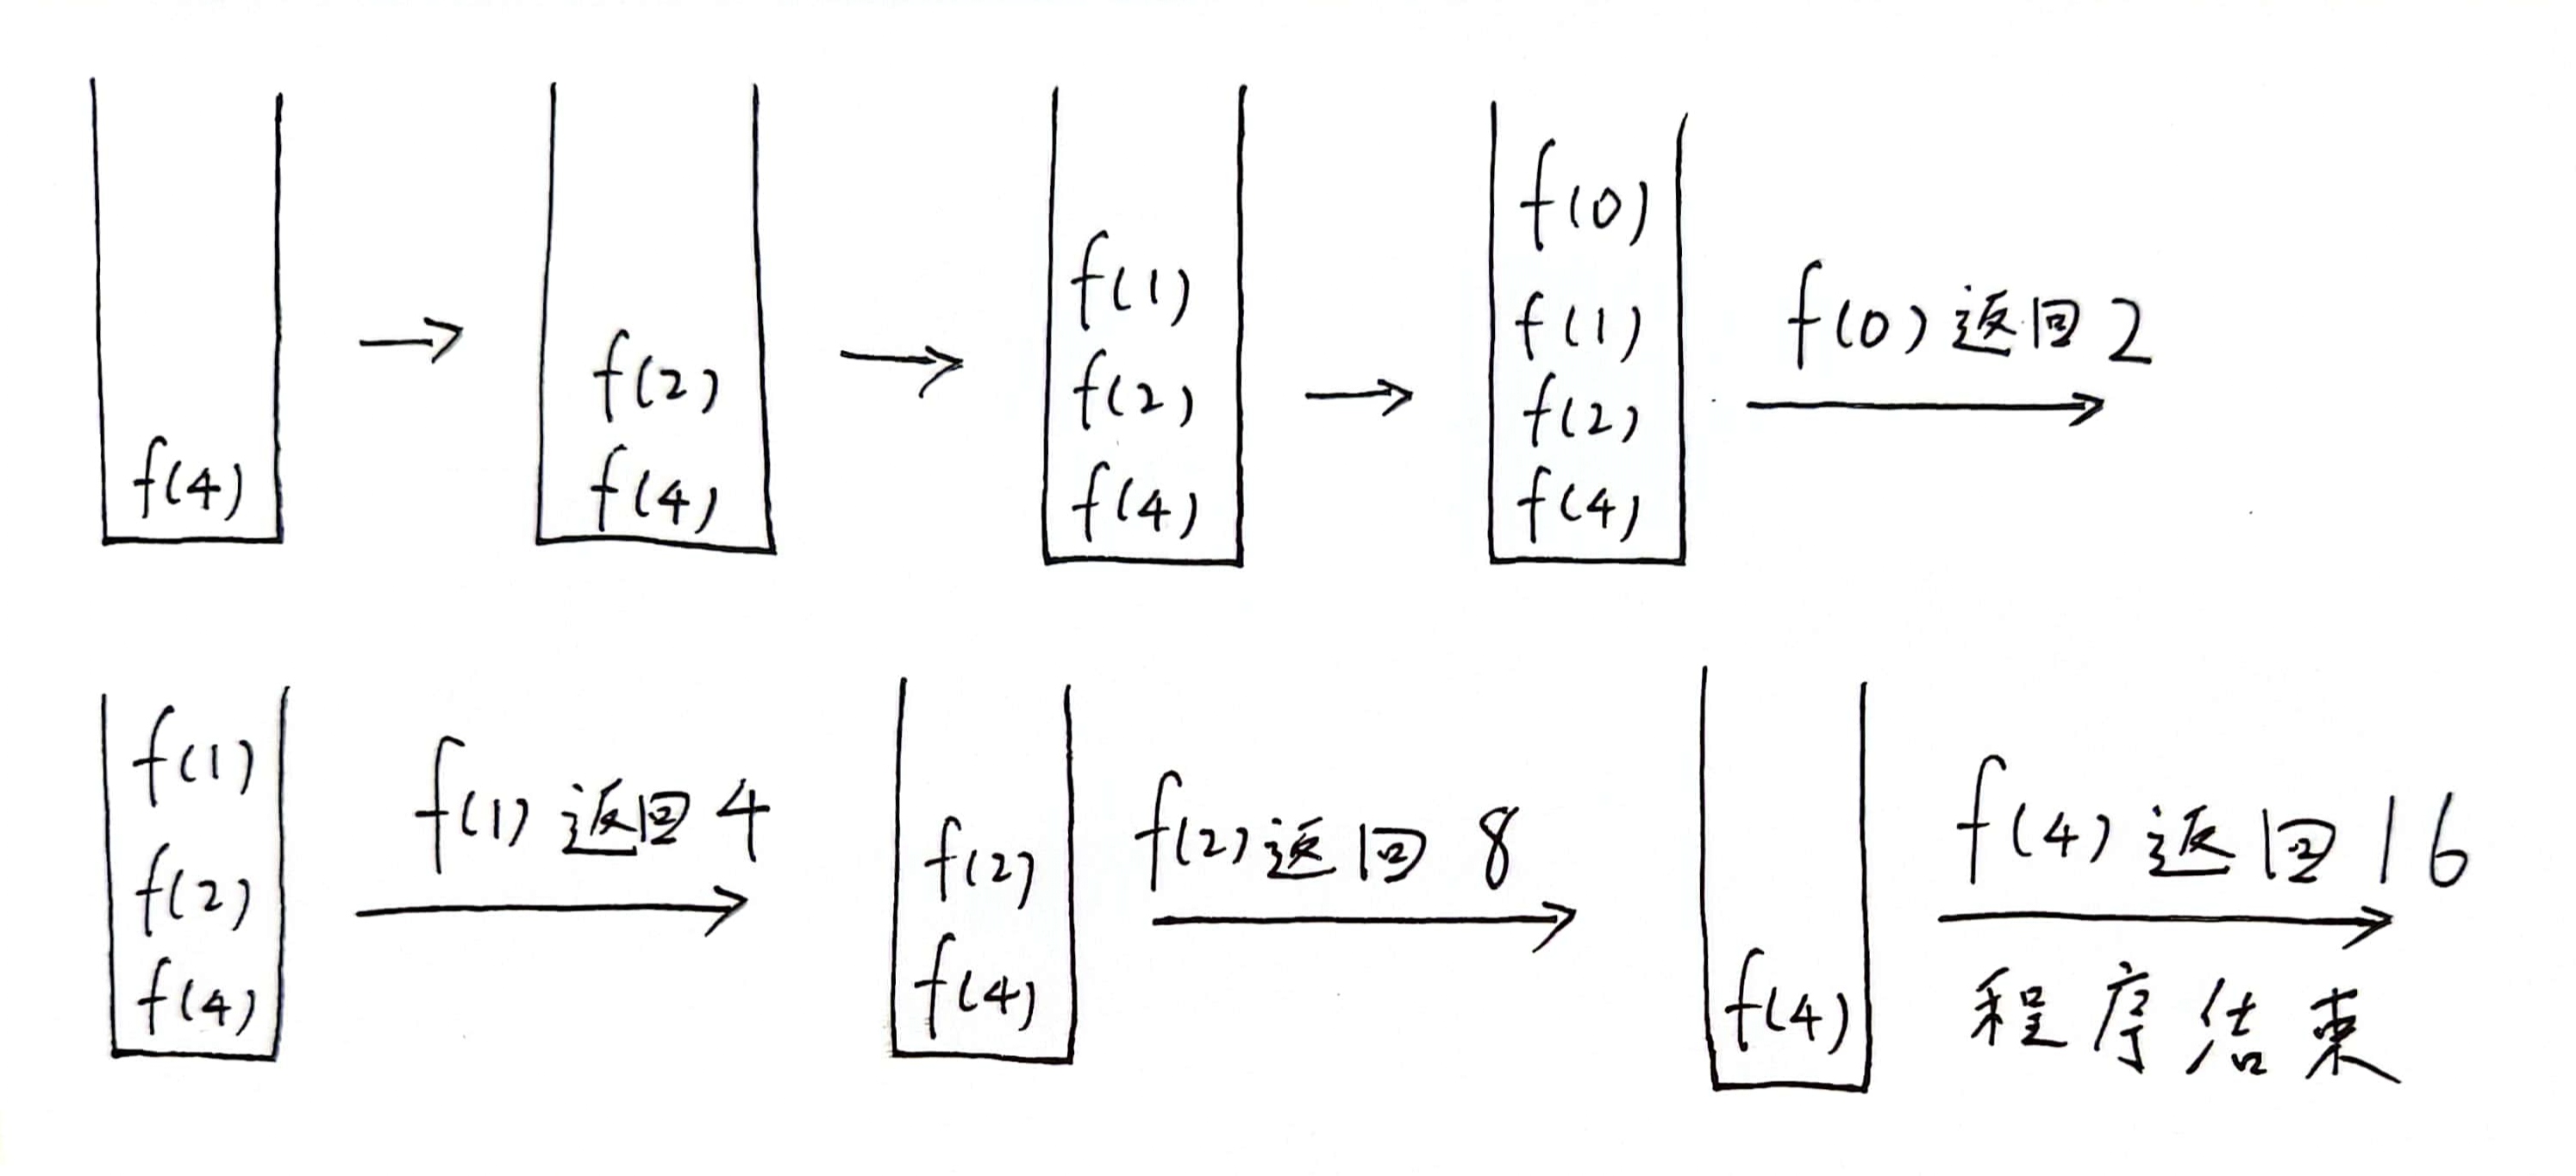 f(4)
f(2)
f(4)
f(1)
f(2)
f(4)
f(0)
f(1)
f(2)
f(4)
f(0)返回2
f(1)
f(2)
f(4)
f(1)返回4
f(2)
f(4)
f(2)返回8
f(4)
f(4)返回16
程序结束